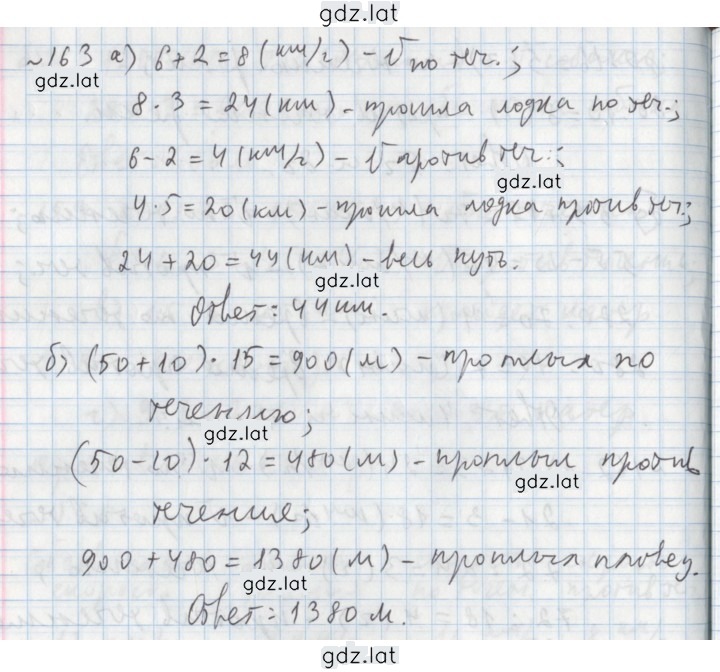 gdz.lat
№163 а) 6+2=8(км/ч) - V по теч.;
gdz.lat
8·3=24(км) - прошла лодка по теч.;
6-2=4(км/ч) - V против теч.;
gdz.lat
4·5=20(км) - прошла лодка против теч.;
24+20=44(км) - весь путь.
gdz.lat
Ответ: 44 км.
б) (50+10)·15=900(м) - проплыл по
течению;
gdz.lat
(50-10)·12=480(м) - проплыл против
gdz.lat
течения;
900+480=1380(м) - проплыл пловец.
gdz.lat
Ответ: 1380 м.
gdz.lat